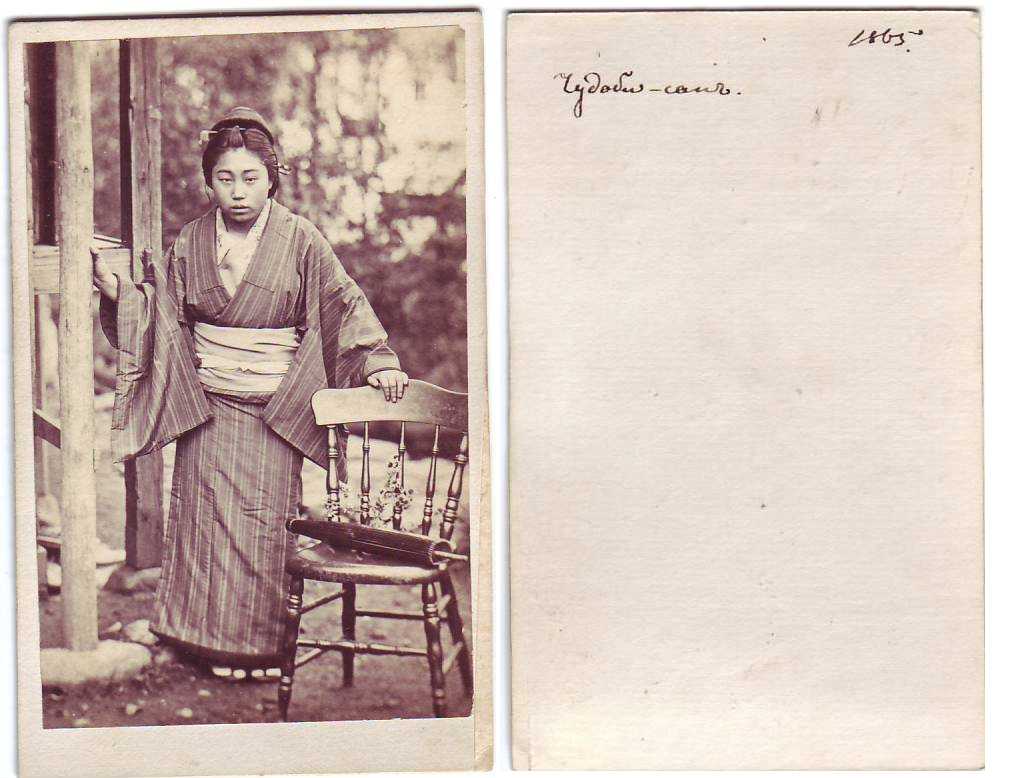 1865.
Чудоби-санъ.